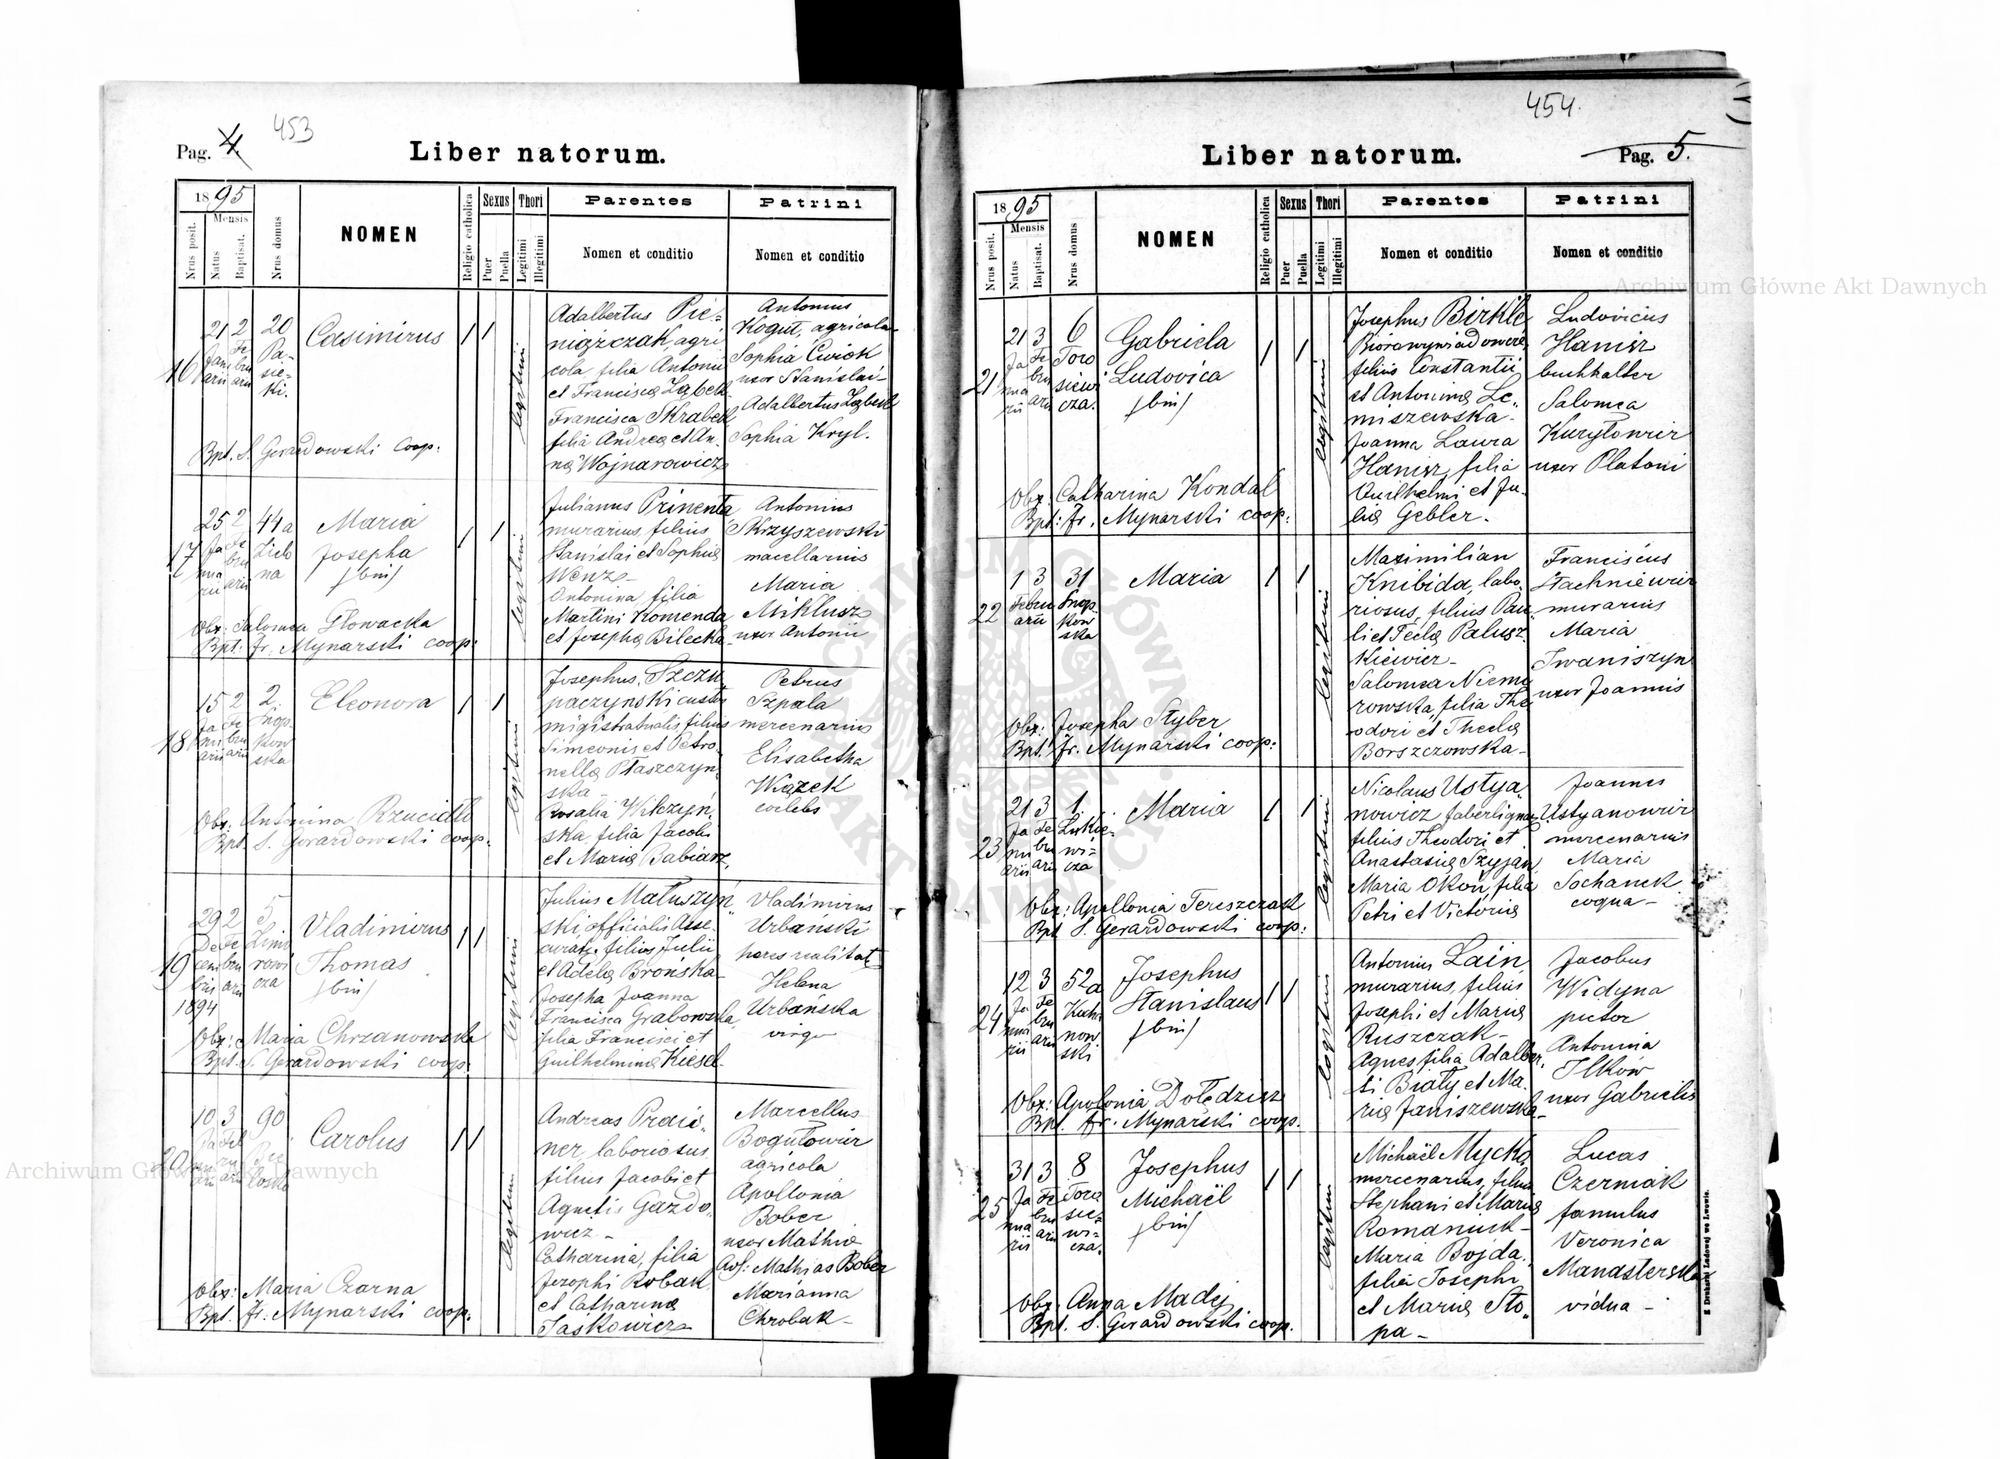 453
Pag. 4.
Liber natorum.
1895
Nrus posit.
Mensis
Natus
Baptisat.
Nrus domus
NOMEN
Religio catholica
Sexus
Puer
Puella
Thori
Legitimi
Illegitimi
Parentes
Nomen et conditio
Patrini
Nomen et conditio
16
21 Januarii
2 Februarii
20 Pasieki.
Casimirus
legitimi
Adalbertus Pie=
niążczak, agri
cola filii Antonii
et Francisca Ząbek
Francisca Skrabek
filia Andrea et An.
na Wojnarowicz
Antonius
Kogut, agricola
Sophia Cwiok
uxor Stanislai
Adalbertus Ząbek
Sophia Kryl.
Bpt. S. Gerardowski coop.
17
25 Januarii
2 Februarii
44a Zielona
Maria
Josepha
/bin/
legitimi
Julianus Prinenta
murarius, filius
Stanislai et Sophia
Wenz-
Antonina filia
Martini Komenda
et Josepha Bilecka
Antonius
Skrzyszewski
macellarius
Maria
Miklusz
uxor Antonii
Obx: Salomea Głowacka
Bpt. Fr. Mynarski coop:
18
15 Januarii
2 Februarii
2. Snopkowska
Eleonora
legitimi
Josephus Szczu
paczynski custos
migistratualis filius
Simeonis et Petro-
nella Płaszczyn
ska-
Rosalia Wilczyń
ska filia Jacobi
et Maria Babiarz
Petrus
Szpala
mercenarius
Elisabetha
Wiązek
coelebs
Obx: Antonina Rzucidło
Bpt. S. Gerardowski coop.
19
29 Decembris 1894
2 Februarii
5 Zimorowicza
Vladimirus
Thomas
/bin/
legitimi
Julius Matuszyń
ski officialis Asse
curat, filius Julii
et Adela Brońska
Josepha Joanna
Francisca Grabowska
filia Francisci et
Guilhelmina Kiesel
Vladimirus
Urbański
hares realitat
Helena
Urbańska
virgo
Obx: Maria Chrzanowska
Bpt. S. Gerardowski coop.
20
10 Januarii
3 Februarii
90
Carolus
legitimi
Andreas Prais
ner, laboriosus
filius Jacobi et
Agnetis Gazdo
wicz-
Catharina, filia
Jozephi Robak
et Catharina
Jaśkowicz
Marcellus
Bogułowicz
agricola
Apollonia
Bober
uxor Mathia
As: Mathias Bober
Marianna
Chrobak-
Obx: Maria Czarna
Bpt. Fr. Mynarski coop.
454.
Liber natorum.
Pag. 5.
1895
Nrus posit.
Mensis
Natus
Baptisat.
Nrus domus
NOMEN
Religio catholica
Sexus
Puer
Puella
Thori
Legitimi
Illegitimi
Parentes
Nomen et conditio
Patrini
Nomen et conditio
21
21 Januarii
3 Februarii
6 Torosiewicza.
Gabriela
Ludovica
/bin/
legitimi
Josephus Birkle
filius Constantii
et Antonina Le-
miszewska-
Joanna Laura
Hanisz, filia
Guilhelmi et Ju-
lia Gebler.
Ludovicus
Hanisz
buchhalter
Salomea
Kuryłowicz
uxor Platoni
Obx: Catharina Kondal
Bpt: Fr. Mynarski coop:
22
1 Februarii
3
31 Snopkowska
Maria
legitimi
Maximilian
Knibida, labo
riosus, filius Pau
li et Tecla Palusz
kiewicz-
Salomea Niemi
rowska, filia The
odori et Thecla
Borszczowska-
Franciscus
Stachniewicz
murarius
Maria
Iwaniszyn
uxor Joannis
Obx: Josepha Styber
Bpt. Fr. Mynarski coop:
23
21 Januarii
3 Februarii
1. Łukiewicza
Maria
legitimi
Nicolaus Ustya-
nowicz faberlignar
filius Theodori et
Anastasia Szyjan
Maria Okoń, filia
Petri et Victoria
Joannes
Ustyanowicz
mercenarius
Maria
Sochanek
coqua-
Obx: Apollonia Tereszczak
Bpt S. Gerardowski coop:
24
12 Januarii
3 Februarii
52a
Josephus
Stanislaus
/bin/
legitimus
Antonius Lain
murarius, filius
Josephi et Maria
Ruszczak-
Agnes filia Adalber
ti Biały et Ma-
ria Janiszewska-
Jacobus
Widyna
pictor
Antonina
Ilków
uxor Gabrielis
Obx: Apolonia Dołędzisz
Bpt. Fr. Mynarski coop.
25
31 Januarii
3 Februarii
8 Torosiewicza.
Josephus
Michaël
/bin/
legitimi
Michaël Mycko
mercenarius, filius
Stephani et Maria
Romaniuk-
Maria Bojda,
filia Josephi
et Maria Sto-
pa-
Lucas
Czerniak
famulus
Veronica
Manasterska
vidua-
Obx. Anna Madej
Bpt. S. Gerardowski coop.
Z Drukarni Ludowej we Lwowie.
Archiwum Główne Akt Dawnych
Archiwum Główne Akt Dawnych